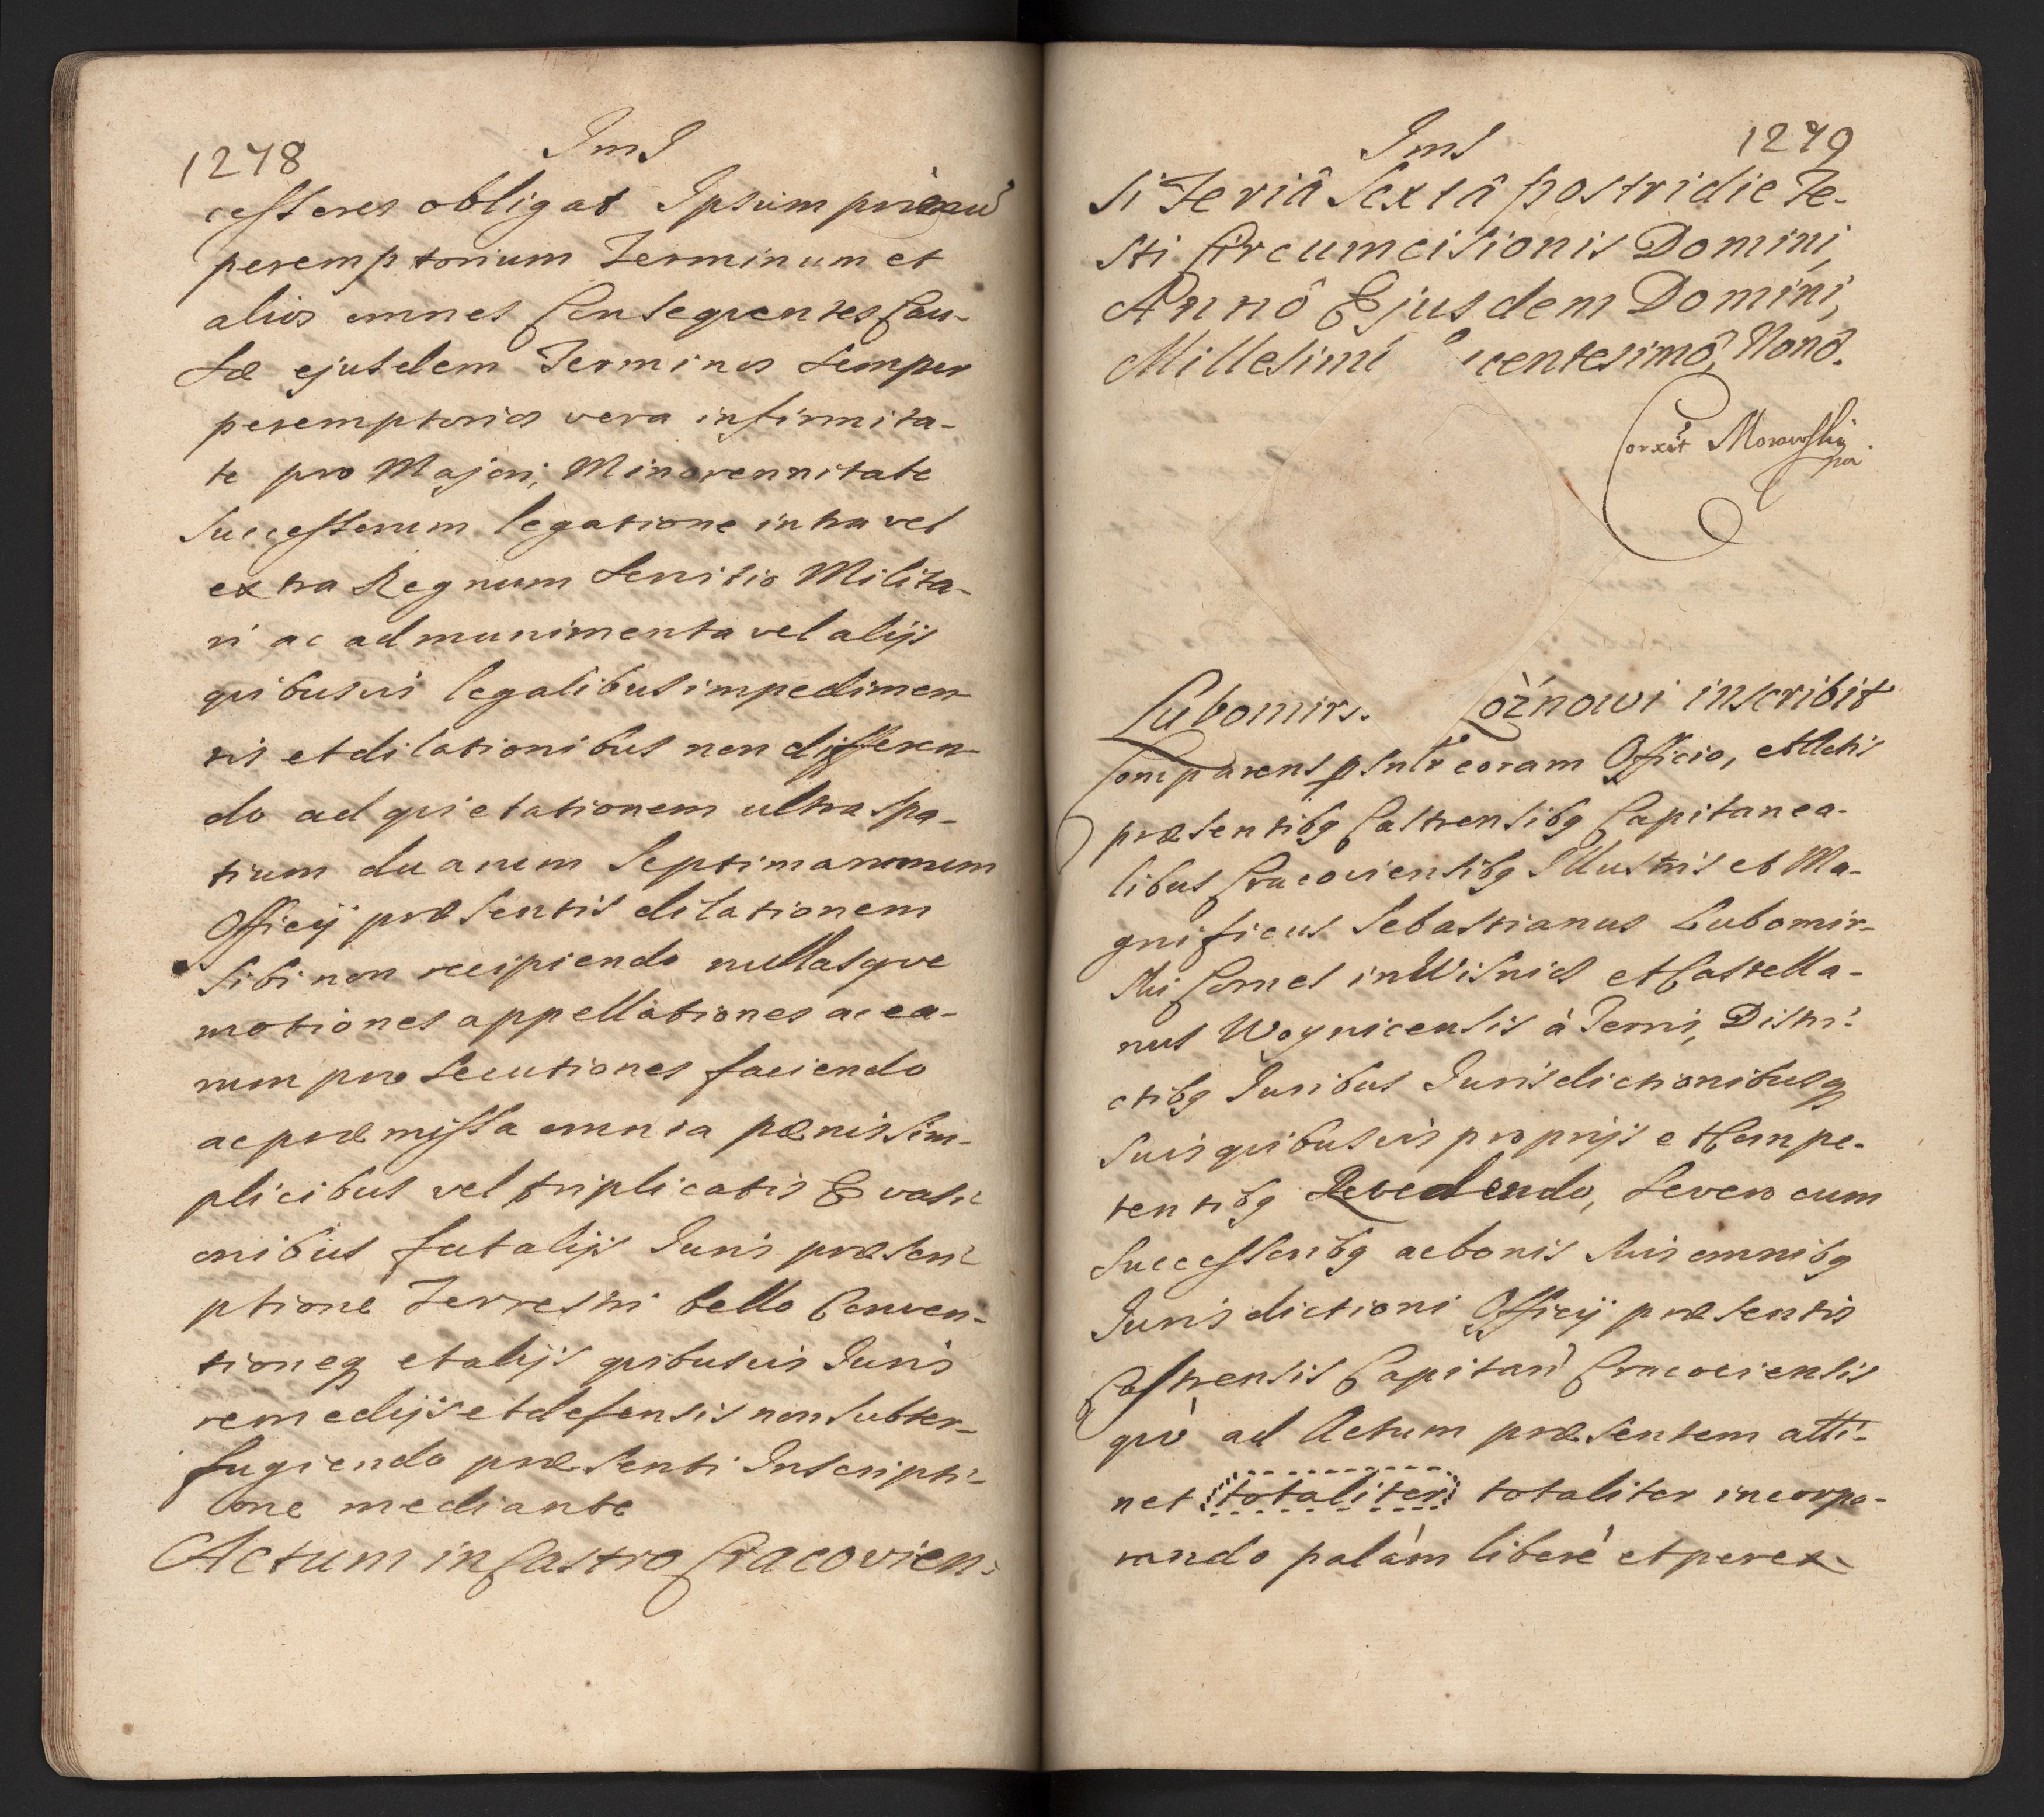 1278
ImI
cessores obligat Ipsum primu
peremptorium Terminum et
alios omnes Consequentes Cau-
sæ ejusdem Terminos semper
peremptorios vera infirmita-
te pro Majori, Minorennitate
successorum legatione intra vel
extra Regnum servitio Milita-
ri ac ad munimenta vel alijs
quibusvis legalibus impedimen
tis et dilationibus non differen-
do ad quietationem ultra spa-
tium duarum septimanarum
Officij præsentis dilationem
sibi non recipiendo nullasque
motiones appellationes ac ea-
rum prosecutiones faciendo
ac præmissa omnia pœnis sim-
plicibus vel triplicatis Evasi-
onibus fatalijs Juris præscri-
ptione Terrestri bello Conven-
tioneq et alijs quibusvis Juris
remedijs et defensis non subter-
fugiendo præsenti Inscripti-
one mediante
Actum in Castro Cracovien-
ImI
1279
si Feriâ Sextâ postridie Fe-
sti Circumcisionis Domini,
Annô Ejusdem Domini,
Millesimô centesimô, Nonô.
Corxit Morawski
Lubomirs. Rożnowi inscribit
Comparens psntr coram Officio, et Actis
præsentibg Castrensibg Capitanea-
libus Cracoviensibg Illustris et Ma-
gnificus Sebastianus Lubomir-
ski Comes in Wisnicz et Castella-
nus Woynicensis à Terris, Distri-
ctibg Juribus Jurisdictionibusq
suis quibusvis proprijs et Compe-
tentibg Recedendo, se vero cum
successoribg ac bonis suis omnibg
Jurisdictioni Officij præsentis
Castrensis Capitan Cracoviensis
quo ad Actum præsentem atti-
net totaliter totaliter incorpo-
rando palàm liberè et perex-